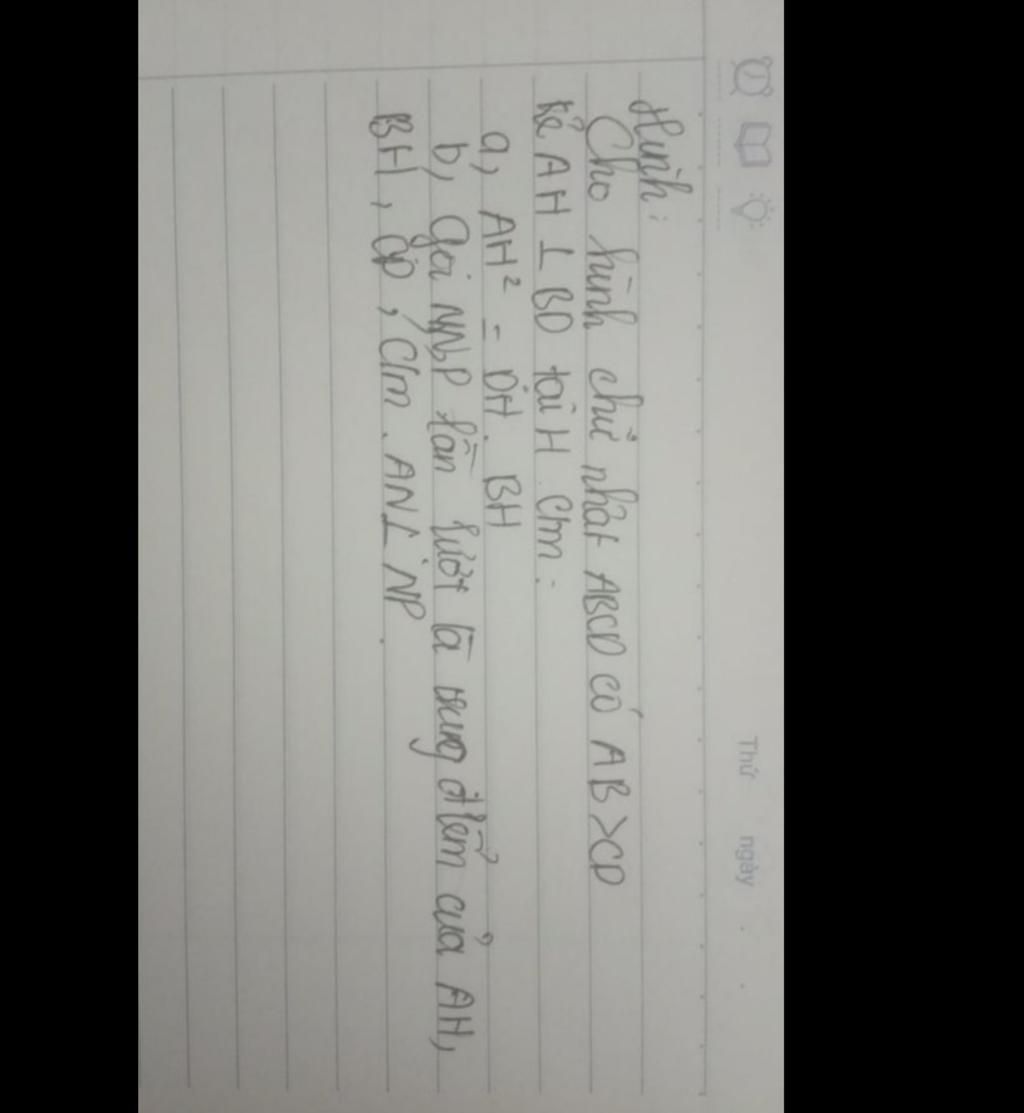 Thứ ngày
Hình:
Cho hình chữ nhật ABCD có AB>CD
kẻ AH ⊥ BD tại H. Cm:
a, AH² = DH. BH
b, Gọi M,N,P lần lượt là trung điểm của AH,
BH, CD, Cm. AN⊥ NP.